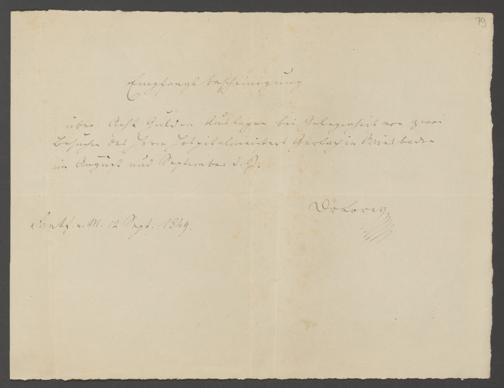 79
Empfangsbescheinigung
über Acht Gulden Auslagen bei Gelegenheit von zwei
Besuchen des Herrn Hospitalmeisters Gerlach in Wiesbaden
im August und September d. J.
Frankf. a. M. 12 Sept. 1849.
Dr Lorey